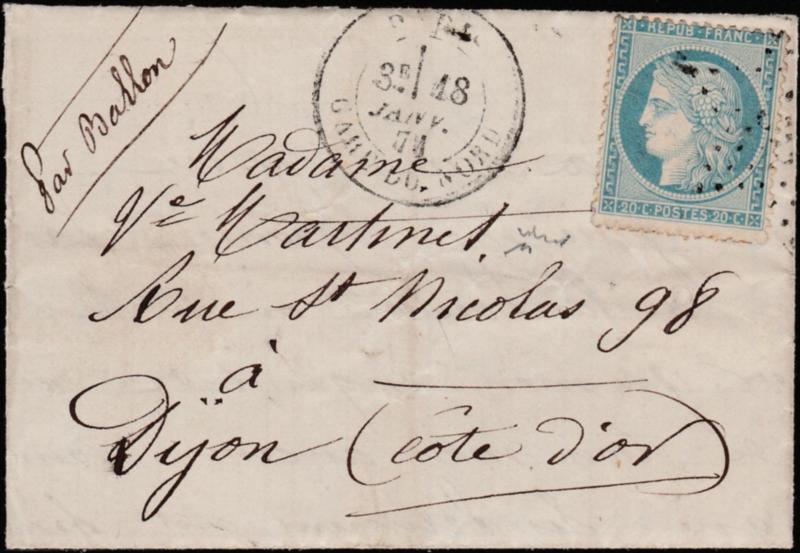 Par Ballon
PARIS
3E 18
JANV.
71
GARE DU NORD
REPUB. FRANC.
20·C·POSTES·20·C·
Madame
Ve Martinet,
Rue St Nicolas 98
à
Dijon (côte d'or)